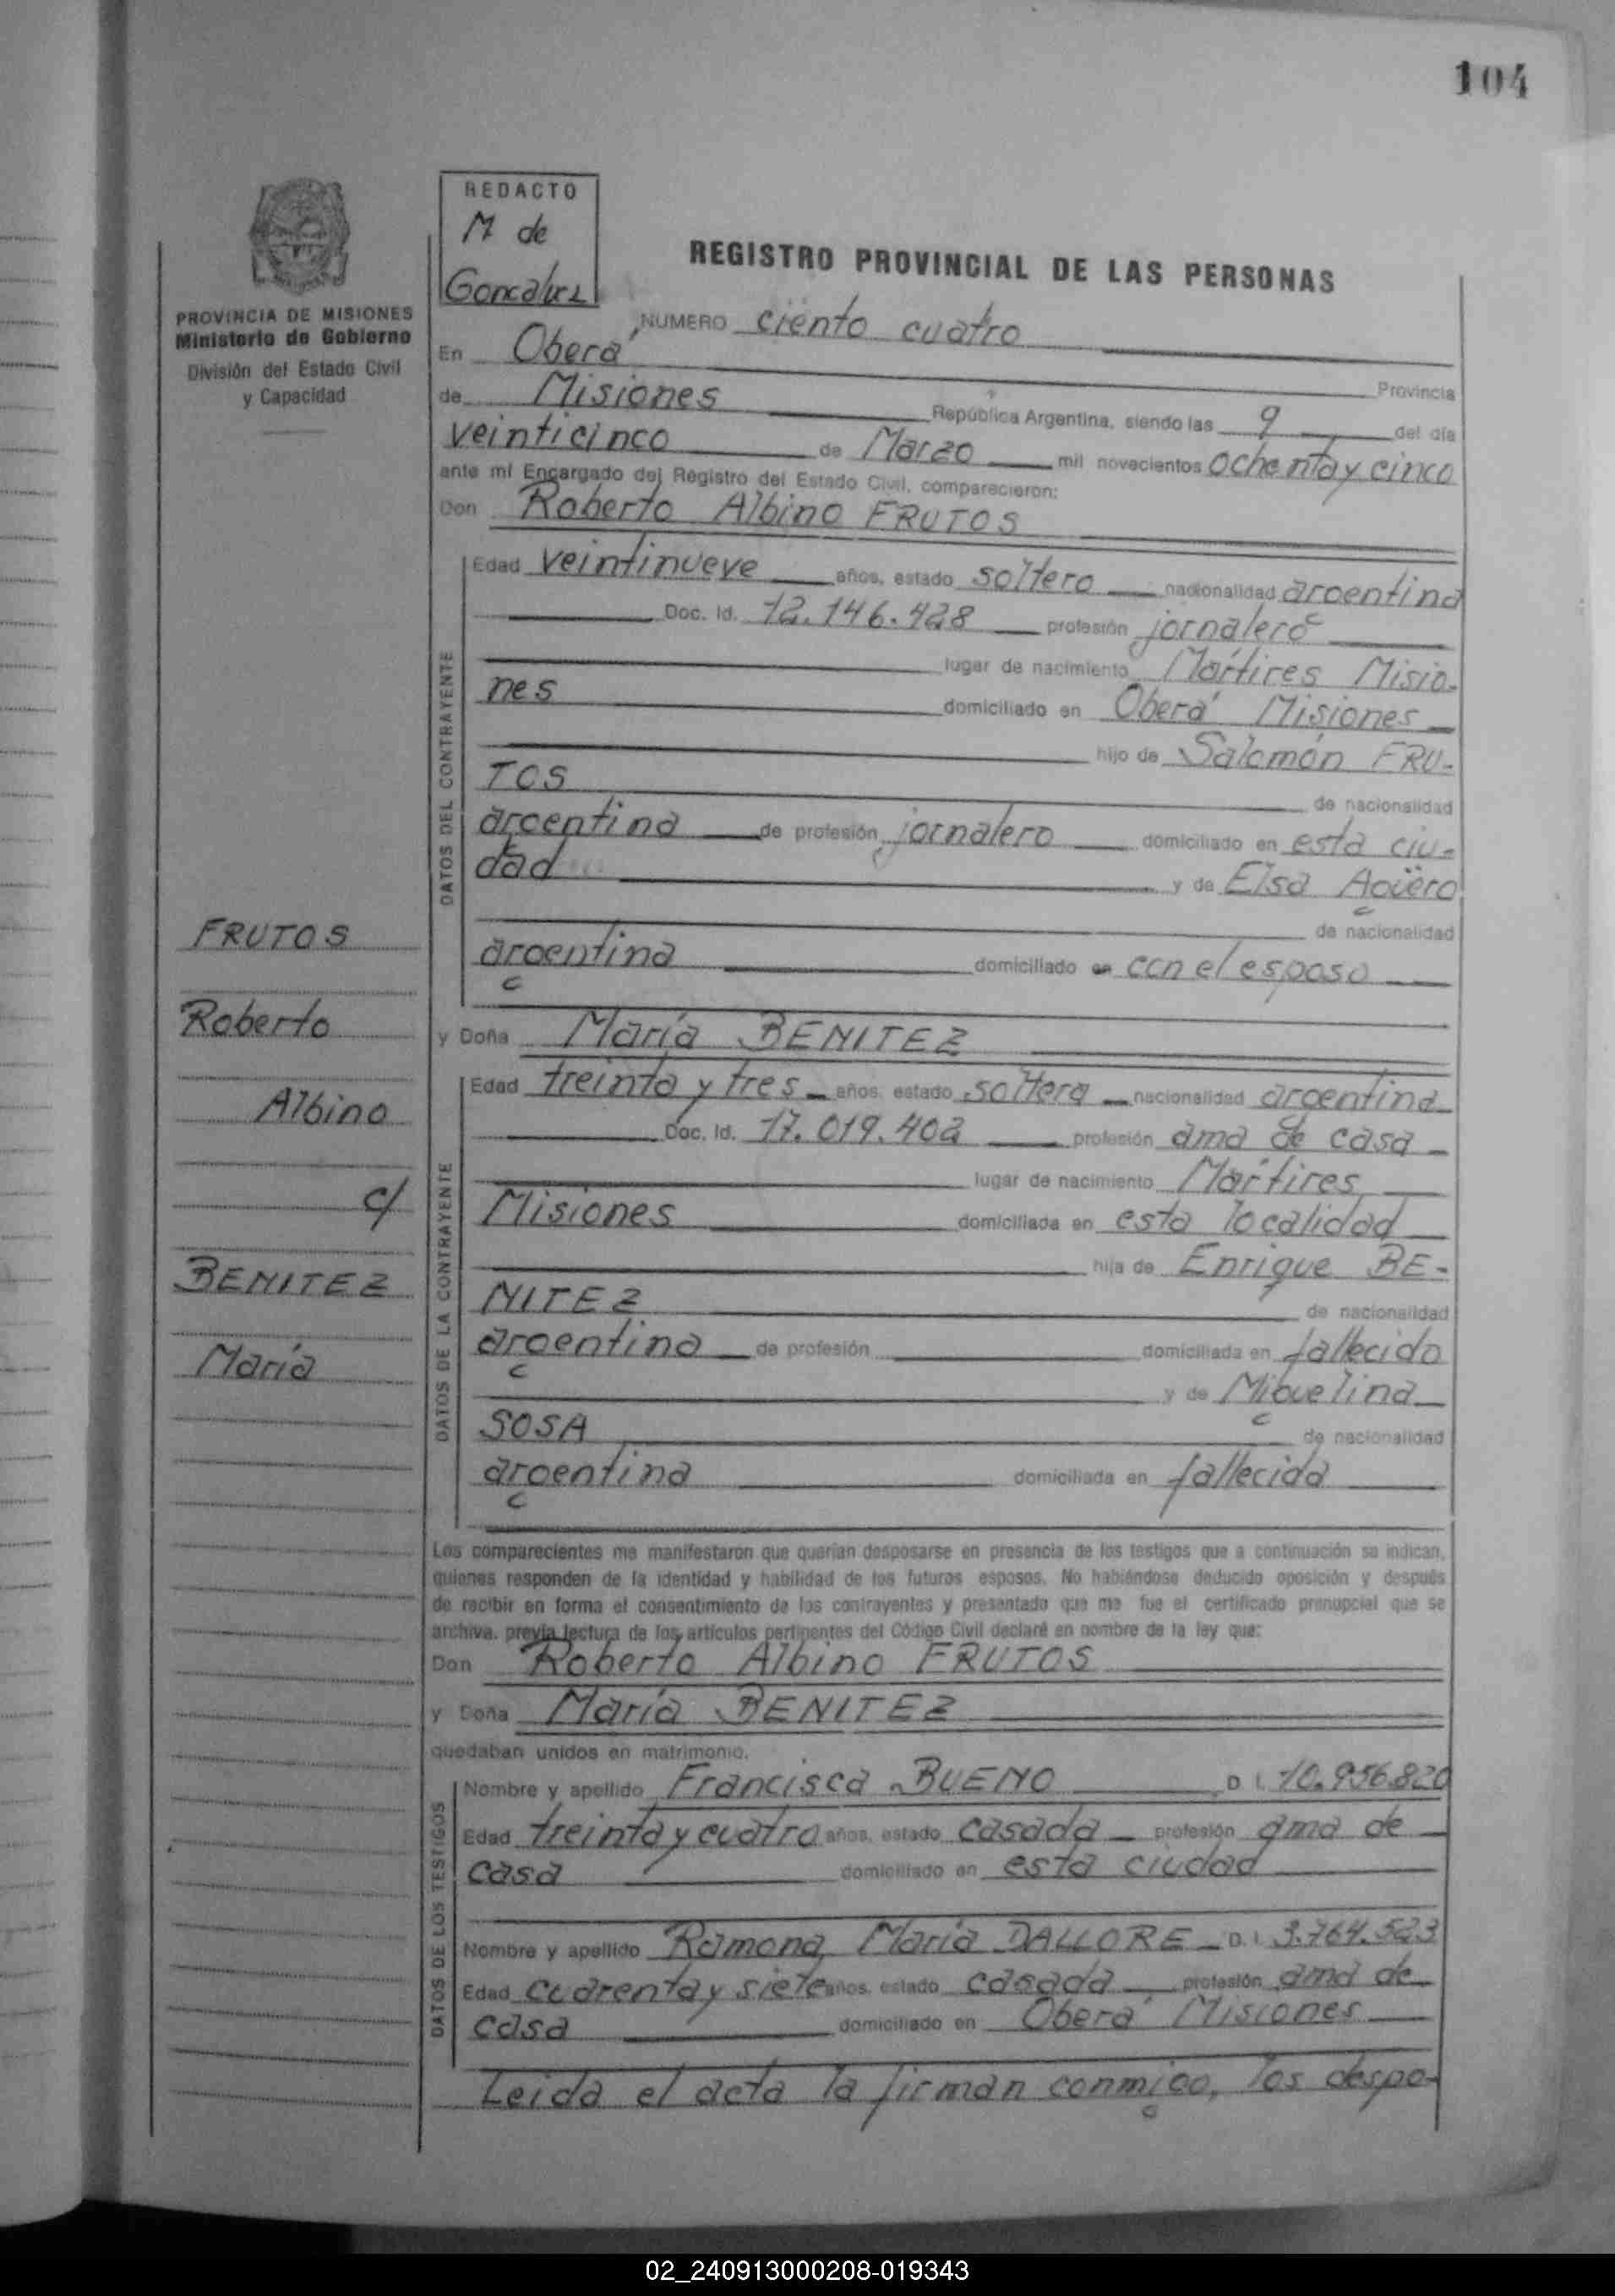 104
REDACTO
M de
Goncalvez
PROVINCIA DE MISIONES
Ministerio de Gobierno
División del Estado Civil
y Capacidad
REGISTRO PROVINCIAL DE LAS PERSONAS
NUMERO ciento cuatro
En Oberá Provincia
de Misiones República Argentina, siendo las 9 del día
veinticinco de Marzo mil novecientos ochenta y cinco
ante mí Encargado del Registro del Estado Civil, comparecieron:
Don Roberto Albino FRUTOS
DATOS DEL CONTRAYENTE
Edad veintinueve años, estado soltero nacionalidad argentina
Doc. Id. 12.146.428 profesión jornalero
lugar de nacimiento Mártires Misio-
nes domiciliado en Oberá Misiones
hijo de Salomón FRU-
TOS de nacionalidad
argentina de profesión jornalero domiciliado en esta ciu-
dad y de Elsa Agüero
de nacionalidad
argentina domiciliado en con el esposo
y Doña María BENITEZ
DATOS DE LA CONTRAYENTE
Edad treinta y tres años, estado soltera nacionalidad argentina
Doc. Id. 17.019.402 profesión ama de casa
lugar de nacimiento Mártires
Misiones domiciliada en esta localidad
hija de Enrique BE-
NITEZ de nacionalidad
argentina de profesión domiciliada en fallecido
y de Miguelina
SOSA de nacionalidad
argentina domiciliada en fallecida
FRUTOS
Roberto
Albino
c/
BENITEZ
María
Los comparecientes me manifestaron que querían desposarse en presencia de los testigos que a continuación se indican,
quienes responden de la identidad y habilidad de los futuros esposos. No habiéndose deducido oposición y después
de recibir en forma el consentimiento de los contrayentes y presentado que me fue el certificado prenupcial que se
archiva, previa lectura de los artículos pertinentes del Código Civil declaré en nombre de la ley que:
Don Roberto Albino FRUTOS
y Doña María BENITEZ
quedaban unidos en matrimonio.
DATOS DE LOS TESTIGOS
Nombre y apellido Francisca BUENO D. I. 10.956.820
Edad treinta y cuatro años, estado casada profesión ama de
casa domiciliado en esta ciudad
Nombre y apellido Ramona María DALLORE D. I. 3.764.523
Edad cuarenta y siete años, estado casada profesión ama de
casa domiciliado en Oberá Misiones
Leida el acta la firman conmigo, los despo-
02_240913000208-019343